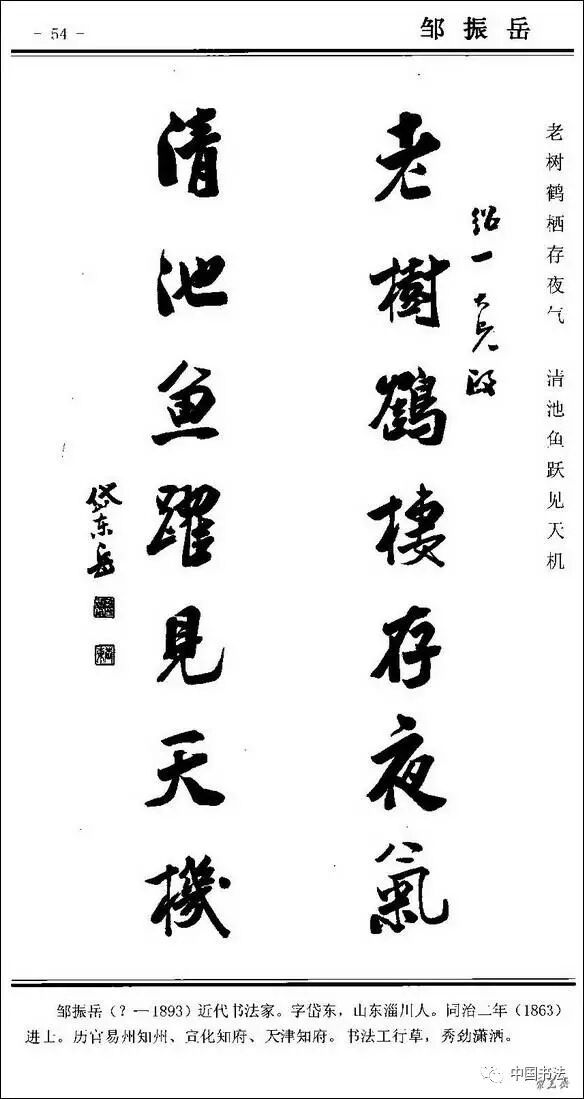 - 54 -
邹振岳
老树鹤栖存夜气 清池鱼跃见天机
绍一大兄政
老樹鶴棲存夜氣
清池魚躍見天機
岱东岳
邹振岳(?—1893)近代书法家。字岱东,山东淄川人。同治二年(1863)
进士。历官易州知州、宣化知府、天津知府。书法工行草,秀劲潇洒。
中国书法